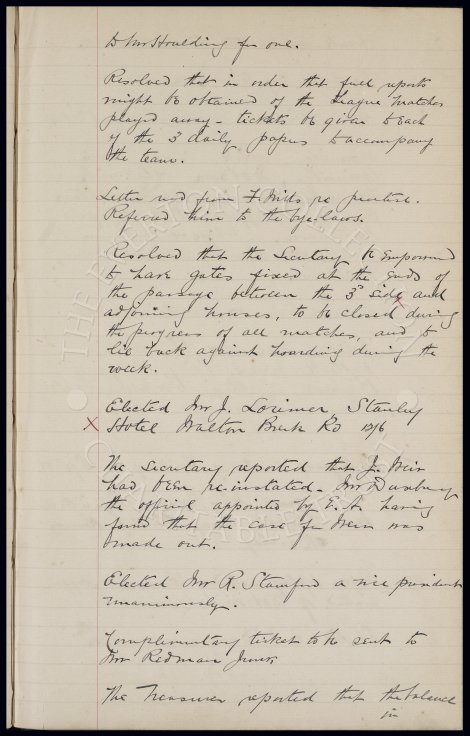 to Mr Houlding for one.
Resolved that in order that full reports
might be obtained of the League matches
played away - tickets be given to each
of the 3 daily papers to accompany
the team.
Letter read from F Mills re practise.
Referred him to the bye-laws.
Resolved that the Secretary be empowered
to have gates fixed at the ends of
the passage between the 3d side and
adjoining houses, to be closed during
the progress of all matches, and to
lie back against hoarding during the
week.
Elected Mr J. Lorimer, Stanley
X Hotel Walton Breck Rd 12/6
The Secretary reported that J. Weir
had been re-instated - Mr Duxbury
the official appointed by F.A. having
found that the case for Weir was
made out.
Elected Mr R. Stamford a vice president
unanimously.
Complimentary ticket to be sent to
Mr Redman
The Treasurer reported that the balance
in
THE EVERTON COLLECTION
CHARITABLE TRUST